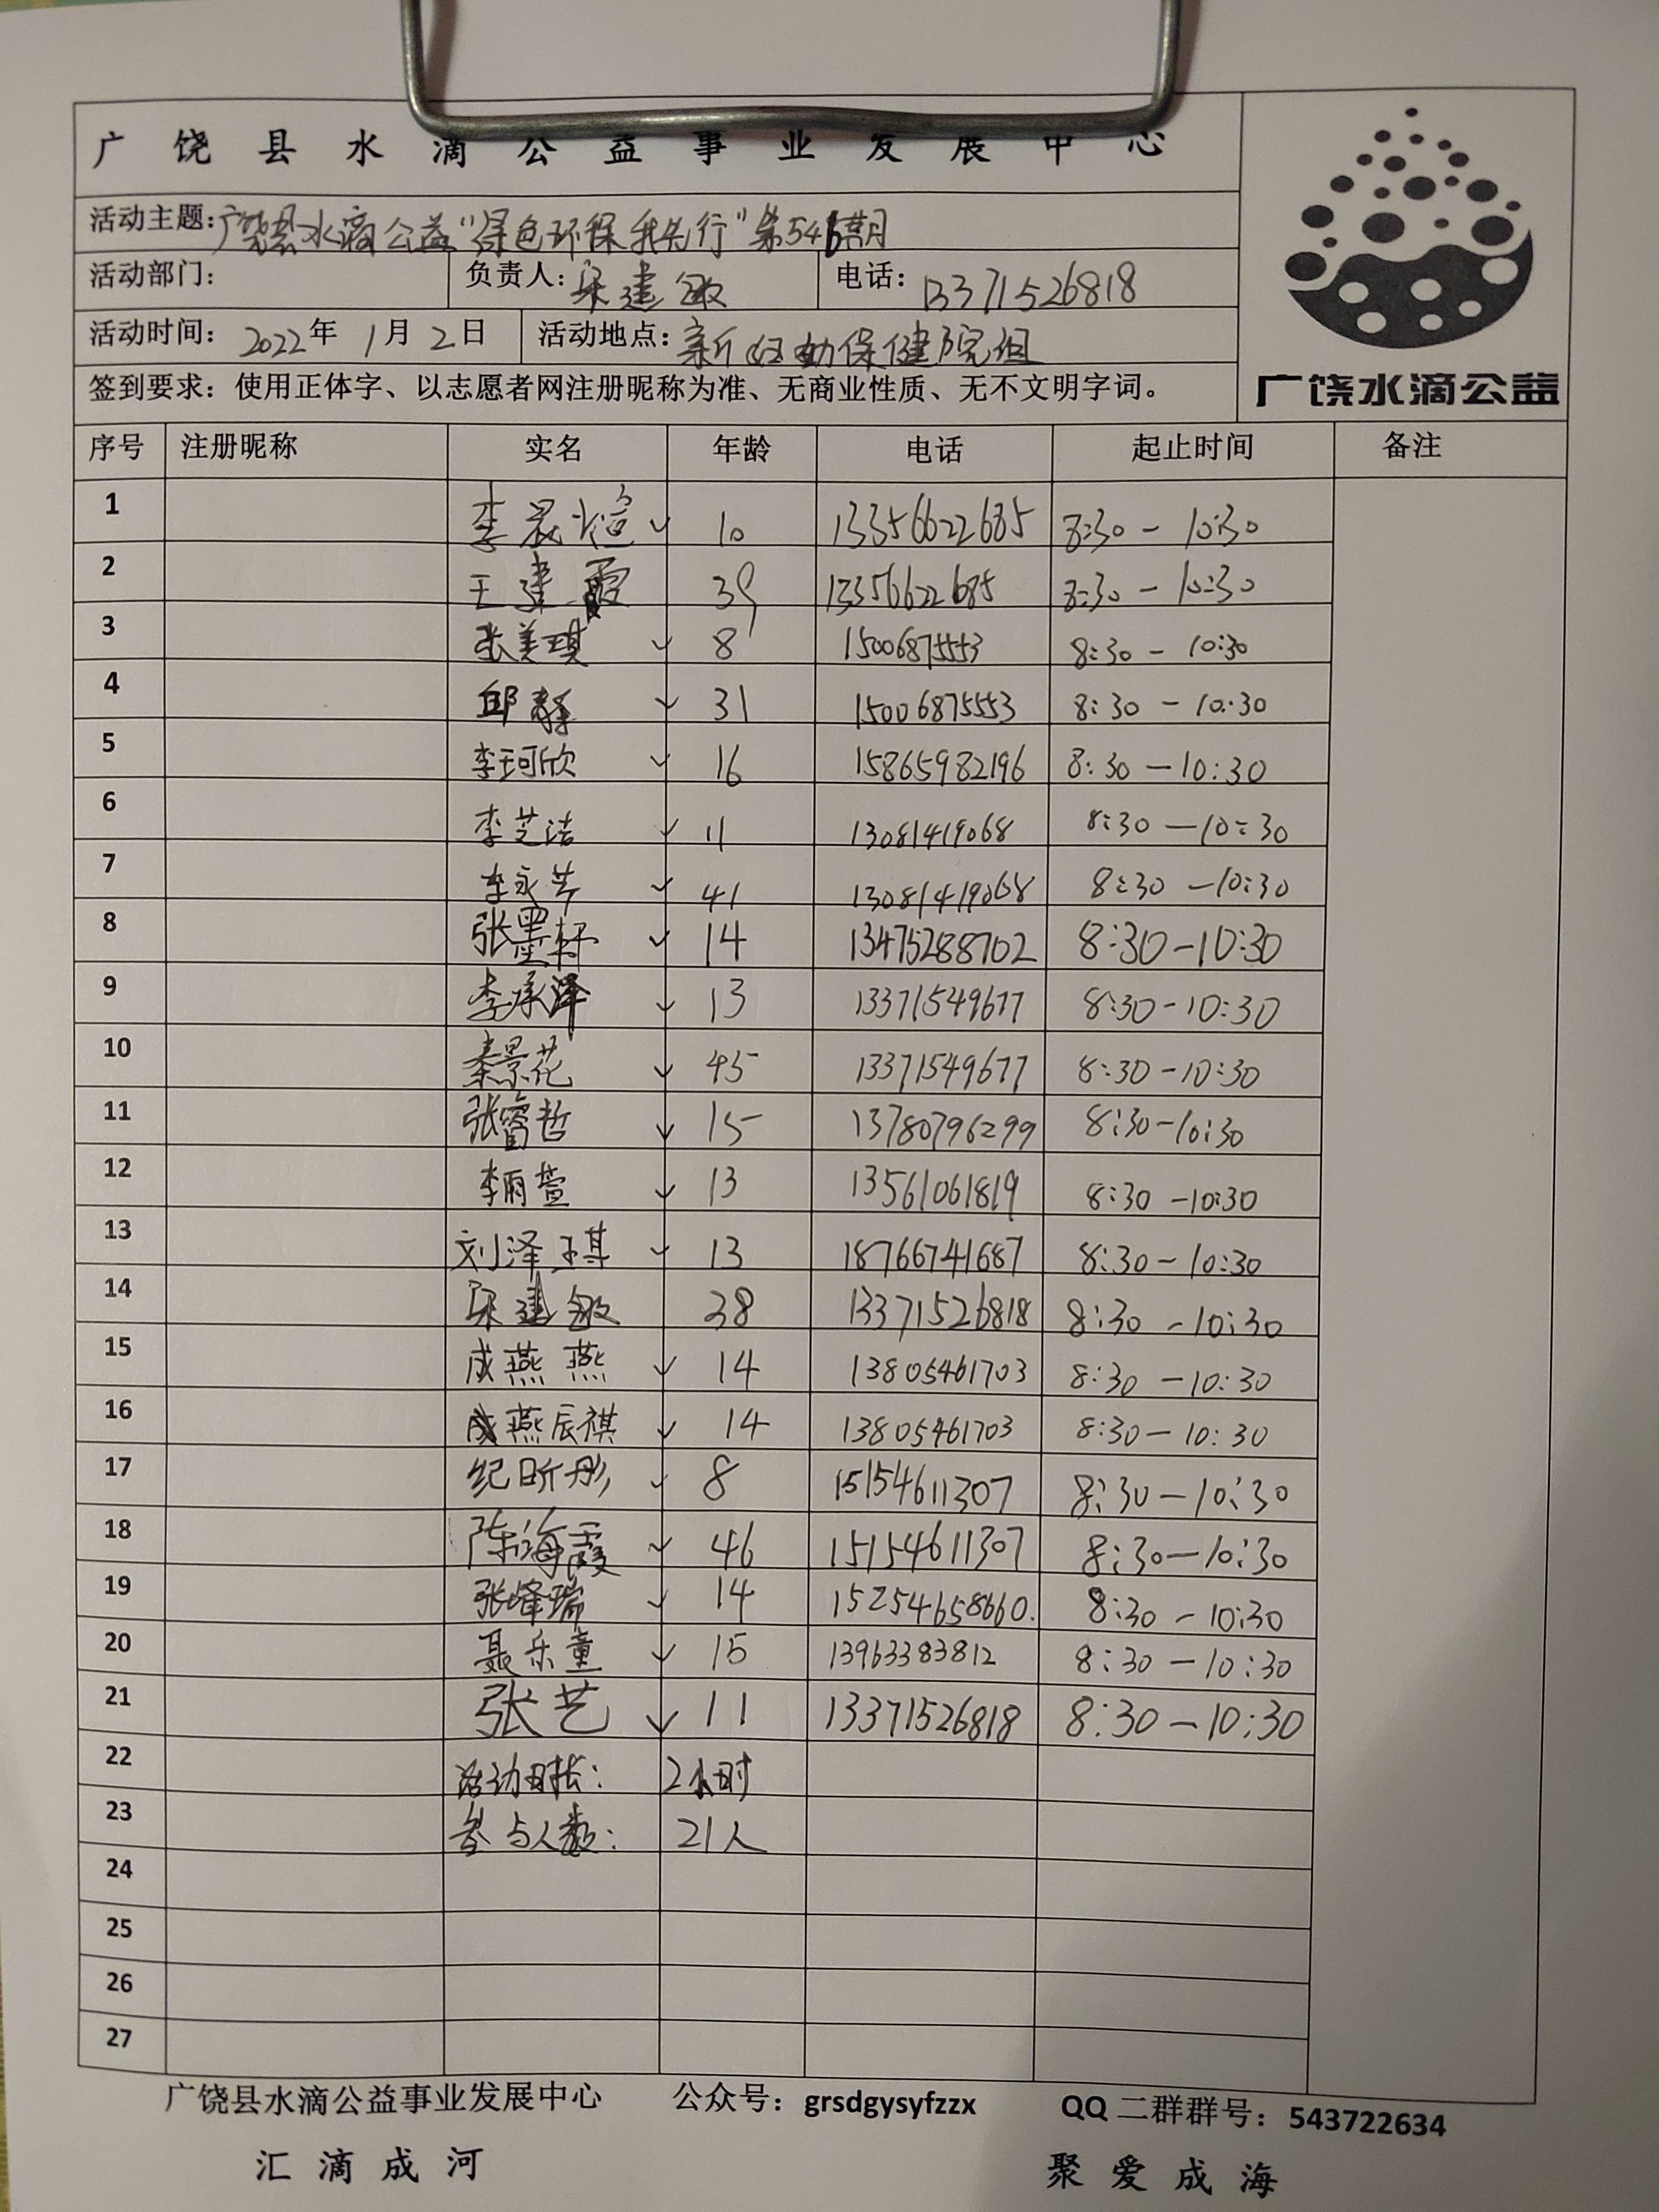 广饶县水滴公益事业发展中心
活动主题：广饶县水滴公益"绿色环保我先行"第546期
活动部门： 负责人：宋建敏 电话：13371526818
活动时间：2022年1月2日 活动地点：新妇幼保健院组
签到要求：使用正体字、以志愿者网注册昵称为准、无商业性质、无不文明字词。
广饶水滴公益
序号 注册昵称 实名 年龄 电话 起止时间 备注
1 李晨煊 ✓ 10 13356622685 8:30 - 10:30
2 王建霞 39 13356622685 8:30 - 10:30
3 张美琪 ✓ 8 15006875553 8:30 - 10:30
4 邱静 ✓ 31 15006875553 8:30 - 10:30
5 李珂欣 ✓ 16 15865982196 8:30 - 10:30
6 李芝洁 ✓ 11 13081419068 8:30 - 10:30
7 李永芳 ✓ 41 13081419068 8:30 - 10:30
8 张墨轩 ✓ 14 13475288702 8:30 - 10:30
9 李承泽 ✓ 13 13371549677 8:30 - 10:30
10 秦景花 ✓ 45 13371549677 8:30 - 10:30
11 张睿哲 ✓ 15 13780796299 8:30 - 10:30
12 李雨萱 ✓ 13 13561061819 8:30 - 10:30
13 刘泽琪 ✓ 13 18766741687 8:30 - 10:30
14 宋建敏 38 13371526818 8:30 - 10:30
15 成燕燕 ✓ 14 13805461703 8:30 - 10:30
16 成燕辰祺 ✓ 14 13805461703 8:30 - 10:30
17 纪昕彤 ✓ 8 15154611307 8:30 - 10:30
18 陈海霞 ✓ 46 15154611307 8:30 - 10:30
19 张峰瑞 ✓ 14 15254658660. 8:30 - 10:30
20 聂乐童 ✓ 15 13963383812 8:30 - 10:30
21 张艺 ✓ 11 13371526818 8:30 - 10:30
22 活动时长： 2小时
23 参与人数： 21人
24
25
26
27
广饶县水滴公益事业发展中心 公众号：grsdgysyfzzx QQ二群群号：543722634
汇滴成河 聚爱成海